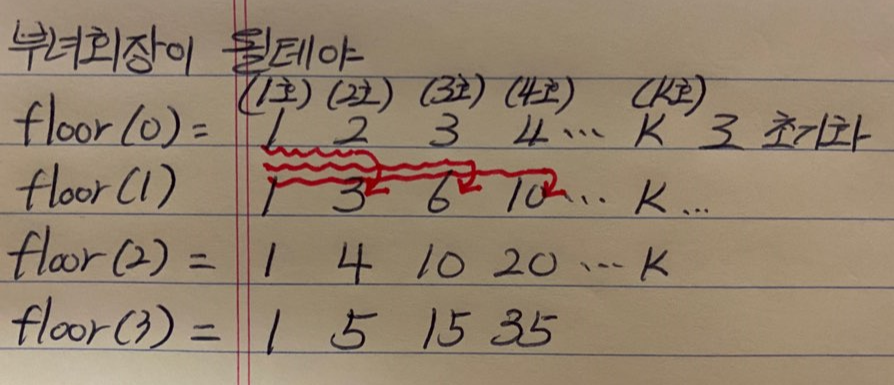 부녀회장이 될테야
(1호) (2호) (3호) (4호) (K호)
floor(0) = 1 2 3 4 ... K 로 초기화
floor(1) 1 3 6 10 ... K ...
floor(2) = 1 4 10 20 ... K
floor(3) = 1 5 15 35